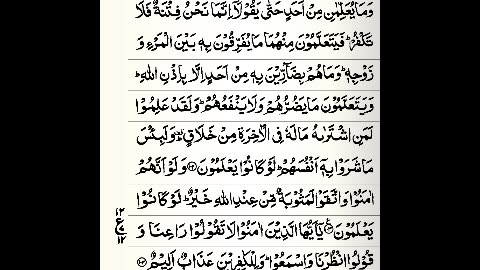 وَمَا يُعَلِّمٰنِ مِنْ اَحَدٍ حَتّٰى يَقُوْلَاۤ اِنَّمَا نَحْنُ فِتْنَةٌ فَلَا
تَكْفُرْؕ فَيَتَعَلَّمُوْنَ مِنْهُمَا مَا يُفَرِّقُوْنَ بِهٖ بَيْنَ الْمَرْءِ وَ
زَوْجِهٖؕ وَمَا هُمْ بِضَآرِّيْنَ بِهٖ مِنْ اَحَدٍ اِلَّا بِاِذْنِ اللّٰهِؕ
وَيَتَعَلَّمُوْنَ مَا يَضُرُّهُمْ وَلَا يَنْفَعُهُمْؕ وَلَقَدْ عَلِمُوْا
لَمَنِ اشْتَرٰىهُ مَا لَهٗ فِى الْاٰخِرَةِ مِنْ خَلَاقٍؕ وَلَبِئْسَ
مَا شَرَوْا بِهٖۤ اَنْفُسَهُمْؕ لَوْ كَانُوْا يَعْلَمُوْنَ ﴿۱۰۲﴾ وَلَوْ اَنَّهُمْ
اٰمَنُوْا وَاتَّقَوْا لَمَثُوْبَةٌ مِّنْ عِنْدِ اللّٰهِ خَيْرٌؕ لَوْ كَانُوْا
يَعْلَمُوْنَ ﴿۱۰۳﴾ يٰۤاَيُّهَا الَّذِيْنَ اٰمَنُوْا لَا تَقُوْلُوْا رَاعِنَا وَ
۱۲
ع
۱۲
قُوْلُوا انْظُرْنَا وَاسْمَعُوْاؕ وَلِلْكٰفِرِيْنَ عَذَابٌ اَلِيْمٌ ﴿۱۰۴﴾